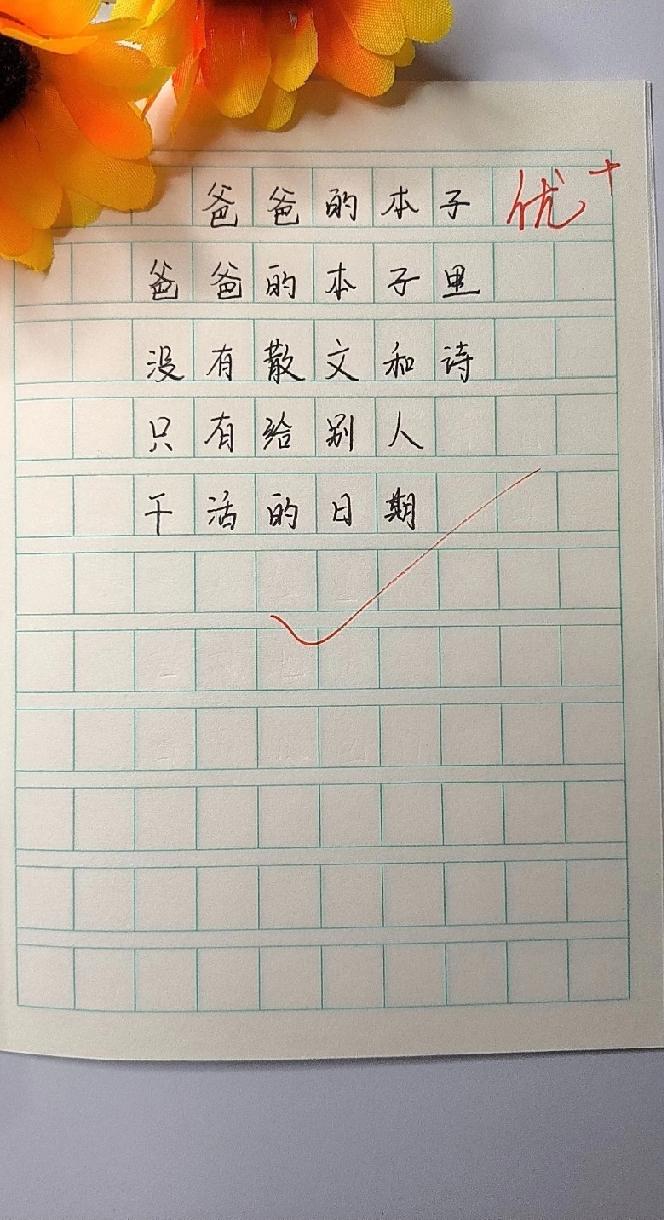 爸爸的本子 优+
爸爸的本子里
没有散文和诗
只有给别人
干活的日期